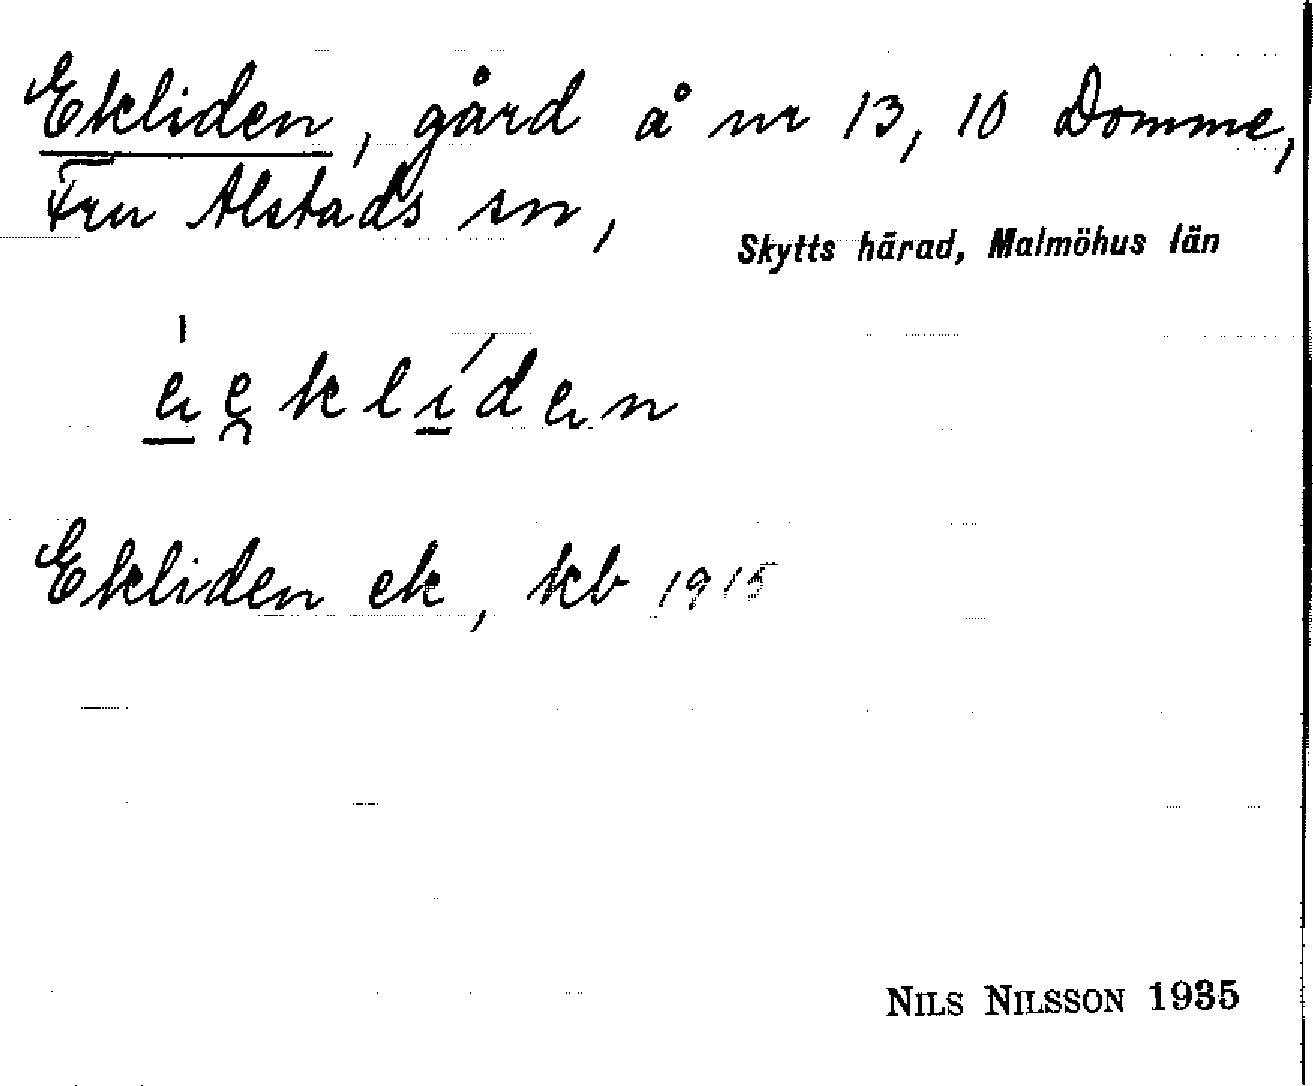 Ekliden, gård å nr 13, 10 Domme,
Fru Alstads sn,
Skytts härad, Malmöhus län
Ekliden ek, kb 1915
NILS NILSSON 1935